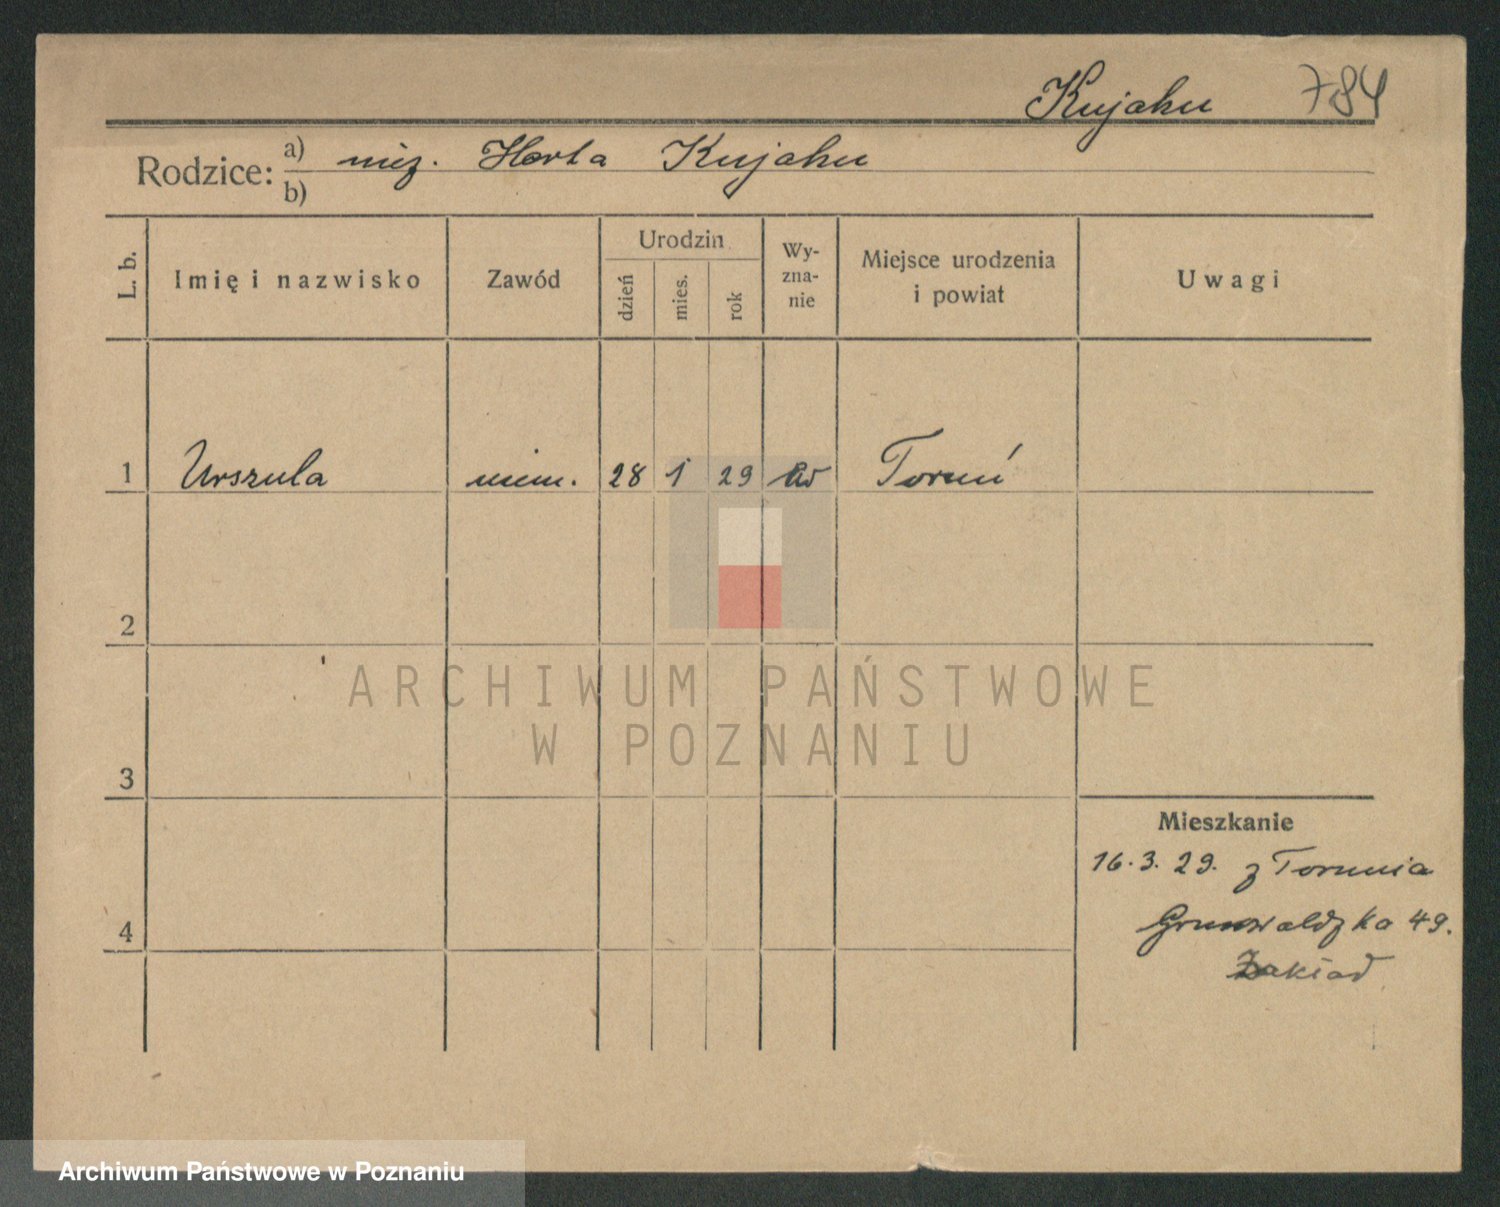 Kujahu 784
Rodzice: a) niez. Herta Kujahu
b)
L. b. Imię i nazwisko Zawód Urodzin dzień mies. rok Wy-zna-nie Miejsce urodzenia i powiat Uwagi
1 Urszula niem. 28 1 29 Toruń
2
3
4
Mieszkanie
16. 3. 29. z Torunia
Grunwaldzka 49.
Zakład
ARCHIWUM PAŃSTWOWE
W POZNANIU
Archiwum Państwowe w Poznaniu